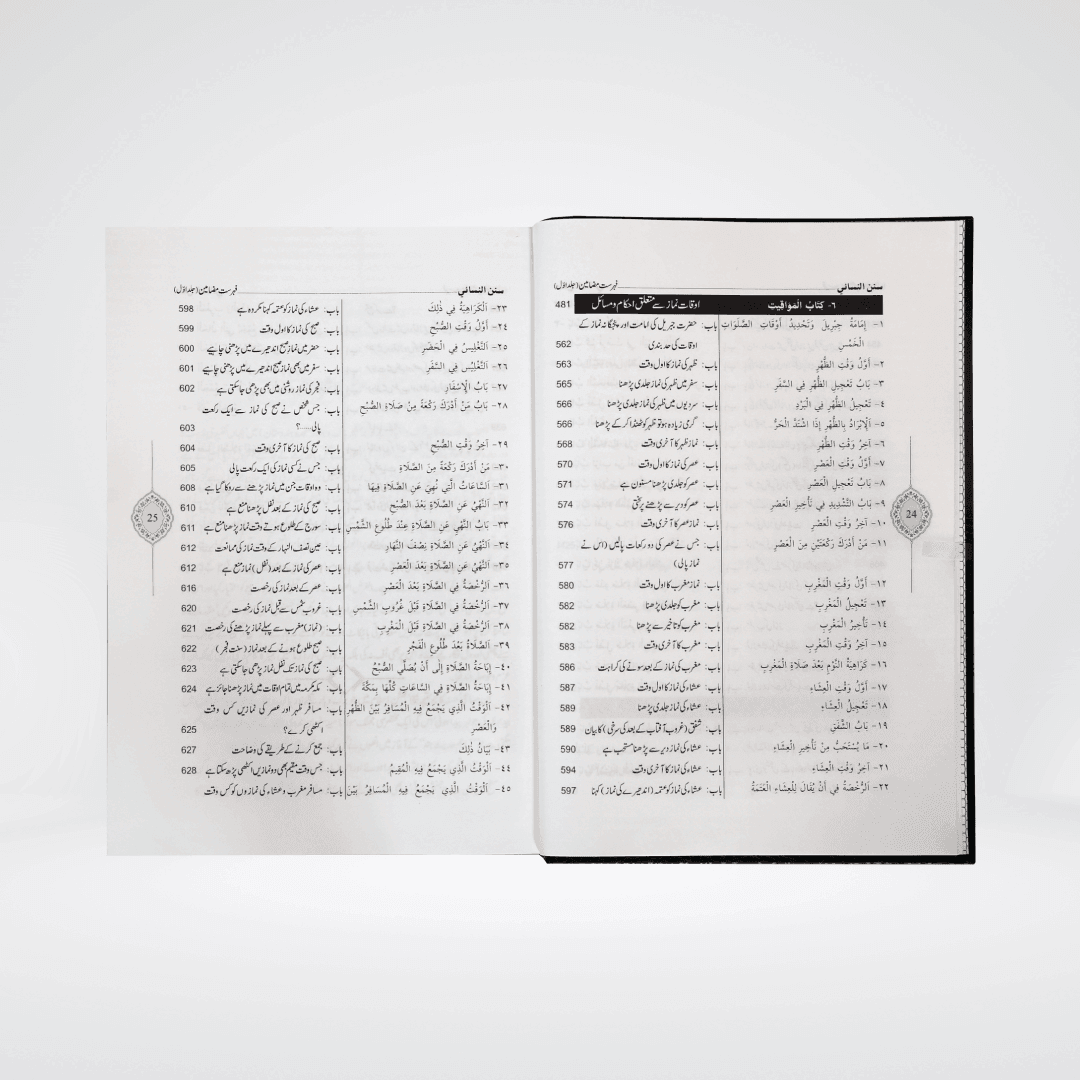 سنن النسائي فہرست مضامین (جلد اول)
٦- كِتَابُ الْمَوَاقِيتِ اوقات نماز سے متعلق احکام و مسائل 481
١- إِمَامَةُ جِبْرِيلَ وَتَحْدِيدُ أَوْقَاتِ الصَّلَوَاتِ باب: حضرت جبریل کی امامت اور پنجگانہ نماز کے
الْخَمْسِ اوقات کی حد بندی 562
٢- أَوَّلُ وَقْتِ الظُّهْرِ باب: ظہر کی نماز کا اول وقت 563
٣- بَابُ تَعْجِيلِ الظُّهْرِ فِي السَّفَرِ باب: سفر میں ظہر کی نماز جلدی پڑھنا 565
٤- تَعْجِيلُ الظُّهْرِ فِي الْبَرْدِ باب: سردیوں میں ظہر کی نماز جلدی پڑھنا 566
٥- اَلْإِبْرَادُ بِالظُّهْرِ إِذَا اشْتَدَّ الْحَرُّ باب: گرمی زیادہ ہو تو ظہر کو ٹھنڈا کر کے پڑھنا 566
٦- آخِرُ وَقْتِ الظُّهْرِ باب: نماز ظہر کا آخری وقت 568
٧- أَوَّلُ وَقْتِ الْعَصْرِ باب: عصر کی نماز کا اول وقت 570
٨- بَابُ تَعْجِيلِ الْعَصْرِ باب: عصر کو جلدی پڑھنا مسنون ہے 571
٩- بَابُ التَّشْدِيدِ فِي تَأْخِيرِ الْعَصْرِ باب: عصر کو دیر سے پڑھنے پر سختی 574
١٠- آخِرُ وَقْتِ الْعَصْرِ باب: نماز عصر کا آخری وقت 576
١١- مَنْ أَدْرَكَ رَكْعَتَيْنِ مِنَ الْعَصْرِ باب: جس نے عصر کی دو رکعات پالیں (اس نے
نماز پالی) 577
١٢- أَوَّلُ وَقْتِ الْمَغْرِبِ باب: نماز مغرب کا اول وقت 580
١٣- تَعْجِيلُ الْمَغْرِبِ باب: مغرب کو جلدی پڑھنا 582
١٤- تَأْخِيرُ الْمَغْرِبِ باب: مغرب کو تاخیر سے پڑھنا 582
١٥- آخِرُ وَقْتِ الْمَغْرِبِ باب: مغرب کا آخری وقت 583
١٦- كَرَاهِيَةُ النَّوْمِ بَعْدَ صَلَاةِ الْمَغْرِبِ باب: مغرب کی نماز کے بعد سونے کی کراہت 586
١٧- أَوَّلُ وَقْتِ الْعِشَاءِ باب: عشاء کی نماز کا اول وقت 587
١٨- تَعْجِيلُ الْعِشَاءِ باب: عشاء کی نماز جلدی پڑھنا 589
١٩- بَابُ الشَّفَقِ باب: شفق (غروب آفتاب کے بعد کی سرخی) کا بیان 589
٢٠- مَا يُسْتَحَبُّ مِنْ تَأْخِيرِ الْعِشَاءِ باب: عشاء کی نماز دیر سے پڑھنا مستحب ہے 590
٢١- آخِرُ وَقْتِ الْعِشَاءِ باب: عشاء کی نماز کا آخری وقت 594
٢٢- اَلرُّخْصَةُ فِي أَنْ يُقَالَ لِلْعِشَاءِ الْعَتَمَةُ باب: عشاء کی نماز کو عتمہ (اندھیرے کی نماز) کہنا 597
24
سنن النسائي فہرست مضامین (جلد اول)
٢٣- اَلْكَرَاهِيَةُ فِي ذٰلِكَ باب: عشاء کی نماز کو عتمہ کہنا مکروہ ہے 598
٢٤- أَوَّلُ وَقْتِ الصُّبْحِ باب: صبح کی نماز کا اول وقت 599
٢٥- اَلتَّغْلِيسُ فِي الْحَضَرِ باب: حضر میں نماز صبح اندھیرے میں پڑھنی چاہیے 600
٢٦- اَلتَّغْلِيسُ فِي السَّفَرِ باب: سفر میں بھی نماز صبح اندھیرے میں پڑھنی چاہیے 601
٢٧- بَابُ الْإِسْفَارِ باب: فجر کی نماز روشنی میں بھی پڑھی جا سکتی ہے 602
٢٨- بَابُ مَنْ أَدْرَكَ رَكْعَةً مِنْ صَلَاةِ الصُّبْحِ باب: جس شخص نے صبح کی نماز سے ایک رکعت
پالی.....؟ 603
٢٩- آخِرُ وَقْتِ الصُّبْحِ باب: صبح کی نماز کا آخری وقت 604
٣٠- مَنْ أَدْرَكَ رَكْعَةً مِنَ الصَّلَاةِ باب: جس نے کسی نماز کی ایک رکعت پالی 605
٣١- اَلسَّاعَاتُ الَّتِي نُهِيَ عَنِ الصَّلَاةِ فِيهَا باب: وہ اوقات جن میں نماز پڑھنے سے روکا گیا ہے 608
٣٢- اَلنَّهْيُ عَنِ الصَّلَاةِ بَعْدَ الصُّبْحِ باب: صبح کی نماز کے بعد نفل پڑھنا منع ہے 610
٣٣- بَابُ النَّهْيِ عَنِ الصَّلَاةِ عِنْدَ طُلُوعِ الشَّمْسِ باب: سورج کے طلوع ہوتے وقت نماز پڑھنا منع ہے 611
٣٤- اَلنَّهْيُ عَنِ الصَّلَاةِ نِصْفَ النَّهَارِ باب: عین نصف النہار کے وقت نماز کی ممانعت 612
٣٥- اَلنَّهْيُ عَنِ الصَّلَاةِ بَعْدَ الْعَصْرِ باب: عصر کی نماز کے بعد (نفل) نماز منع ہے 612
٣٦- اَلرُّخْصَةُ فِي الصَّلَاةِ بَعْدَ الْعَصْرِ باب: عصر کے بعد نماز کی رخصت 616
٣٧- اَلرُّخْصَةُ فِي الصَّلَاةِ قَبْلَ غُرُوبِ الشَّمْسِ باب: غروب شمس سے قبل نماز کی رخصت 620
٣٨- اَلرُّخْصَةُ فِي الصَّلَاةِ قَبْلَ الْمَغْرِبِ باب: (نماز) مغرب سے پہلے نماز پڑھنے کی رخصت 621
٣٩- اَلصَّلَاةُ بَعْدَ طُلُوعِ الْفَجْرِ باب: صبح طلوع ہونے کے بعد نماز (سنت فجر) 622
٤٠- إِبَاحَةُ الصَّلَاةِ إِلَى أَنْ يُصَلِّيَ الصُّبْحَ باب: صبح کی نماز تک نفل نماز پڑھی جا سکتی ہے 623
٤١- إِبَاحَةُ الصَّلَاةِ فِي السَّاعَاتِ كُلِّهَا بِمَكَّةَ باب: مکہ مکرمہ میں تمام اوقات میں نماز پڑھنا جائز ہے 624
٤٢- اَلْوَقْتُ الَّذِي يَجْمَعُ فِيهِ الْمُسَافِرُ بَيْنَ الظُّهْرِ باب: مسافر ظہر اور عصر کی نمازیں کس وقت
وَالْعَصْرِ اکٹھی کرے؟ 625
٤٣- بَيَانُ ذٰلِكَ باب: جمع کرنے کے طریقے کی وضاحت 627
٤٤- اَلْوَقْتُ الَّذِي يَجْمَعُ فِيهِ الْمُقِيمُ باب: جس وقت مقیم بھی دو نمازیں اکٹھی پڑھ سکتا ہے 628
٤٥- اَلْوَقْتُ الَّذِي يَجْمَعُ فِيهِ الْمُسَافِرُ بَيْنَ باب: مسافر مغرب و عشاء کی نمازوں کو کس وقت
25